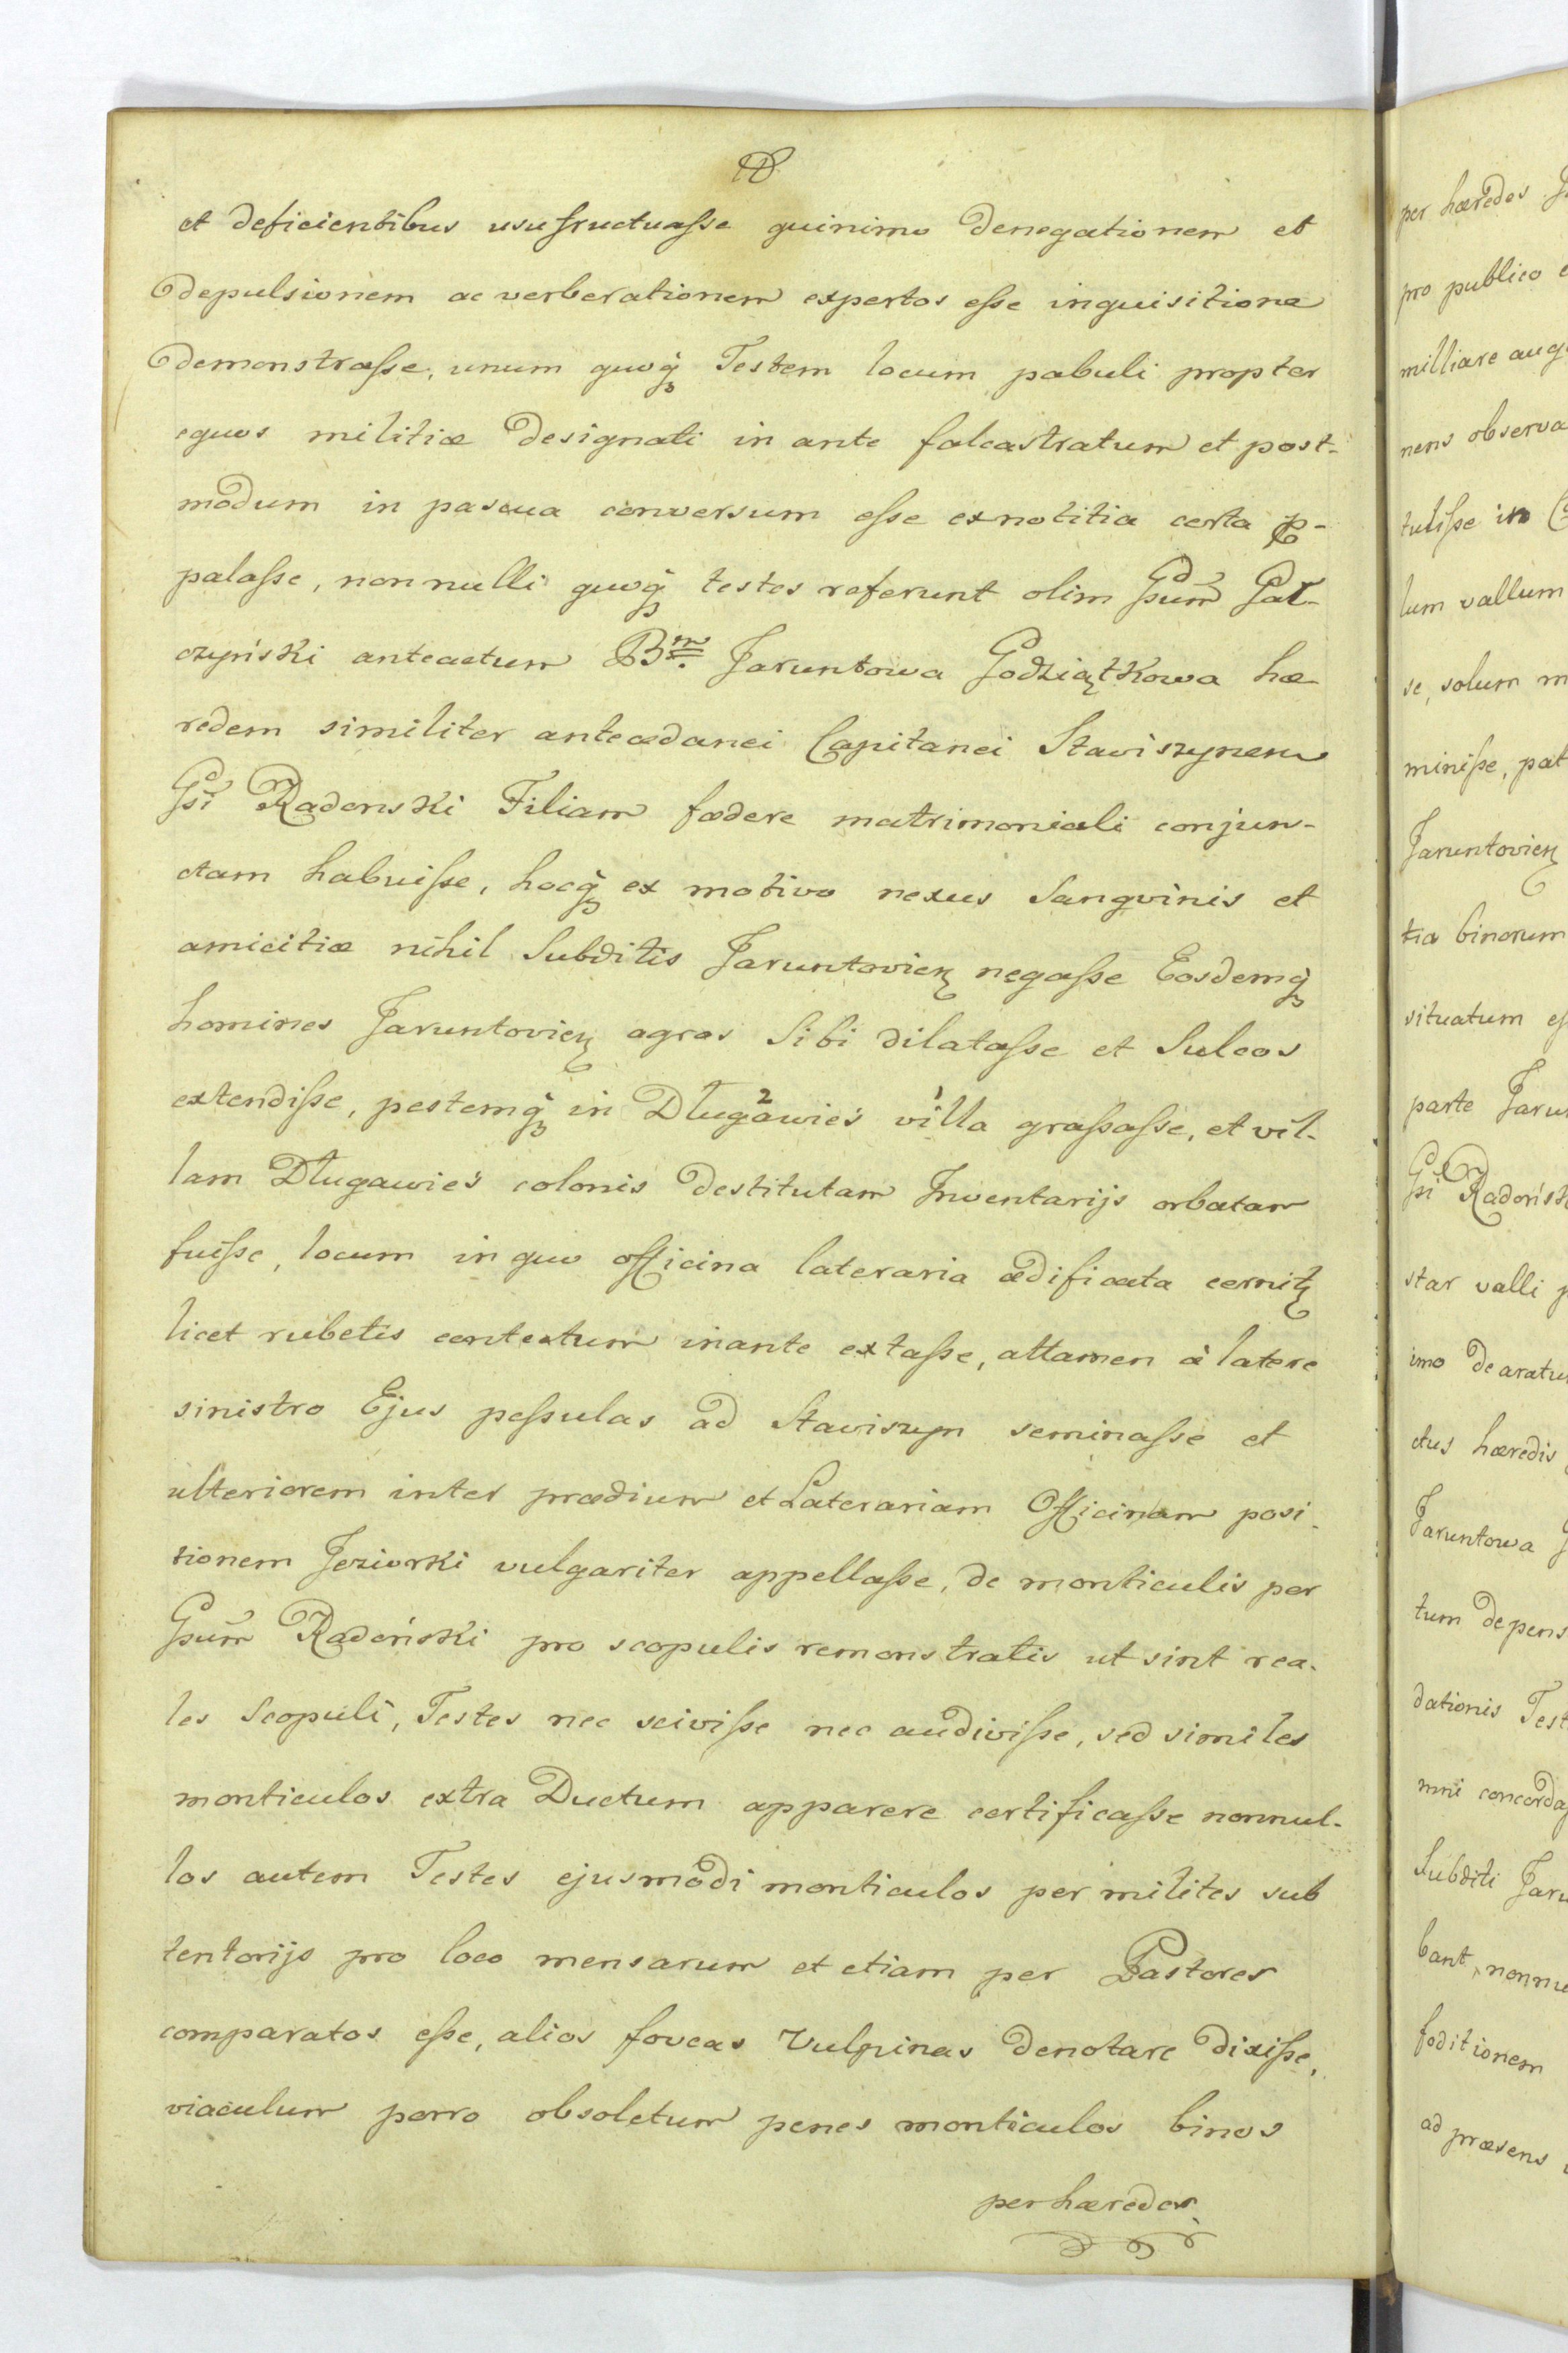 et deficientibus usufructuaſse quinimo denegationem et
depulsionem ac verberationem expertos eſse inquisitione
demonstraſse, unum quoq̃ Testem locum pabuli propter
equos militiæ designati in ante falcastratum et post-
modum in pascua conversum eſse ex notitia certa p-
palaſse, nonnulli quoq̃ testes referunt olim Gsum̃ Gał-
czyński anteactum Bm̃. Jaruntowa Godziątkowa hæ-
redem similiter anteædanei Capitanei Stawiszynen
Gsi Radonski Filiam fœdere matrimoniali conjun-
ctam habuiſse, hocq̃ ex motivo nexus Sangvinis et
amicitiæ nihil Subditis Jaruntovien negaſse Eosdemq̃
homines Jaruntovien agros Sibi dilataſse et Sulcos
extendiſse, pestemq̃ in Długawieś 2 villa 1 graſsaſse, et vil-
lam Długawieś colonis destitutam Inventarijs orbatam
fuiſse, locum in quo officina lateraria ædificata cernit
licet rubetis contextum inante extaſse, attamen à latere
sinistro Ejus peſsulas ad Stawiszyn seminaſse et
ulteriorem inter prædium et Laterariam Officinam posi-
tionem Jeziorki vulgariter appellaſse, de monticulis per
Gsum̃ Radoński pro scopulis remonstratis ut sint rea-
les Scopuli, Testes nec sciviſse nec audiviſse, sed similes
monticulos extra Ductum apparere certificaſse nonnul-
los autem Testes ejusmodi monticulos per milites sub
tentorijs pro loco mensarum et etiam per Pastores
comparatos eſse, alios foveas Vulpinas denotare dixiſse,
viaculum porro obsoletum penes monticulos binos
per hæredes
per hæredes
pro publico
milliare
nens observa
tuliſse in
lum vallum
se, solum
miniſse, pat
Jaruntovien
tia binorum
situatum
parte Jaru
Gsi Radońsk
star valli
imo de aratu
ctus hæredis
Jaruntowa
tum depens
dationis Test
mni concorda
Subditi Jaru
bant, nonnu
foditionem
ad præsens